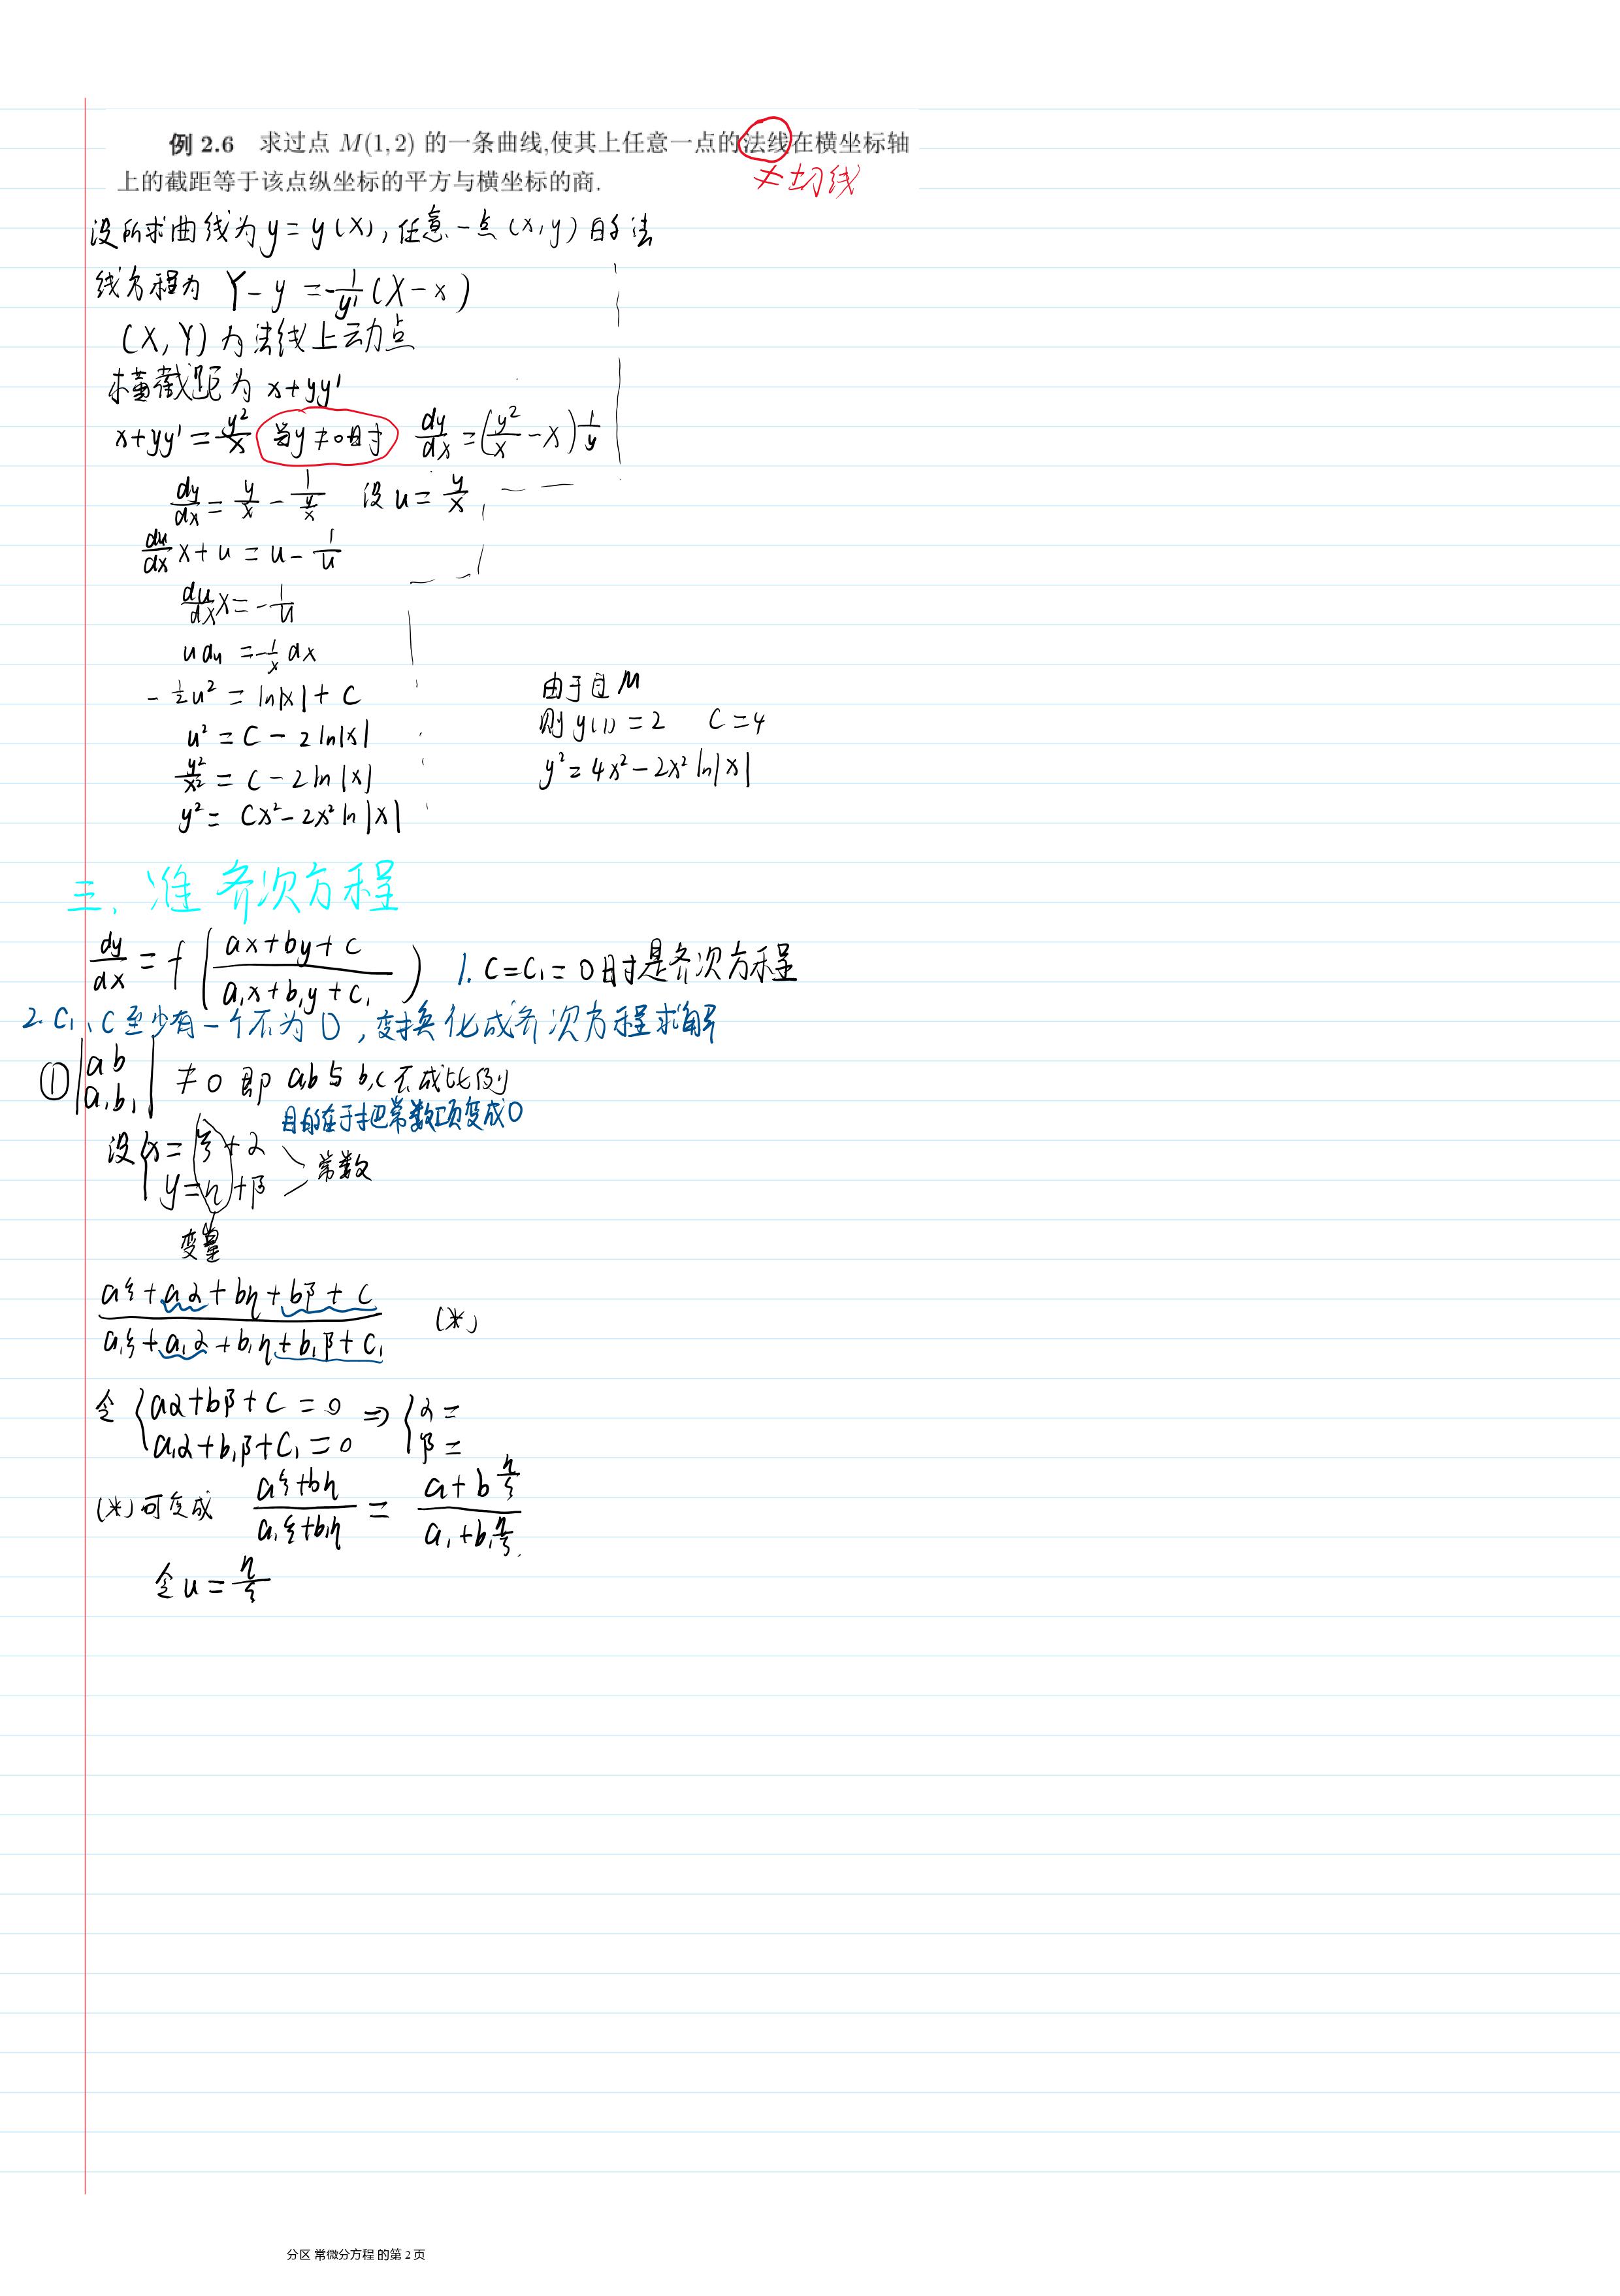 例 2.6 求过点 M(1,2) 的一条曲线,使其上任意一点的法线在横坐标轴
上的截距等于该点纵坐标的平方与横坐标的商.
≠切线
设所求曲线为y=y(x),任意一点(x,y)的法
线方程为 Y-y=-1/y'(X-x)
(X,Y)为法线上动点
横截距为 x+yy'
x+yy'=y²/x 当y≠0时 dy/dx=(y²/x-x)1/y
dy/dx=y/x-1/(y/x) 设u=y/x
du/dx x+u=u-1/u
du/dx x=-1/u
u du=-1/x dx
-½u²=ln|x|+C
u²=C-2ln|x|
y²/x²=C-2ln|x|
y²=Cx²-2x²ln|x|
由于过M
则y(1)=2 C=4
y²=4x²-2x²ln|x|
三、准齐次方程
dy/dx=f((ax+by+c)/(a₁x+b₁y+c₁)) 1. C=C₁=0时是齐次方程
2. C₁、C至少有一个不为0,变换化成齐次方程求解
①|a b
a₁ b₁| ≠0 即 a,b与b,c不成比例
目的在于把常数项变成0
设{x=ξ+α
y=η+β 常数
变量
(aξ+aα+bη+bβ+c)/(a₁ξ+a₁α+b₁η+b₁β+c₁) (*)
令{aα+bβ+c=0 ⇒ {α=
a₁α+b₁β+c₁=0 β=
(*)可变成 (aξ+bη)/(a₁ξ+b₁η)=(a+bη/ξ)/(a₁+b₁η/ξ)
令u=η/ξ
分区 常微分方程 的第 2 页